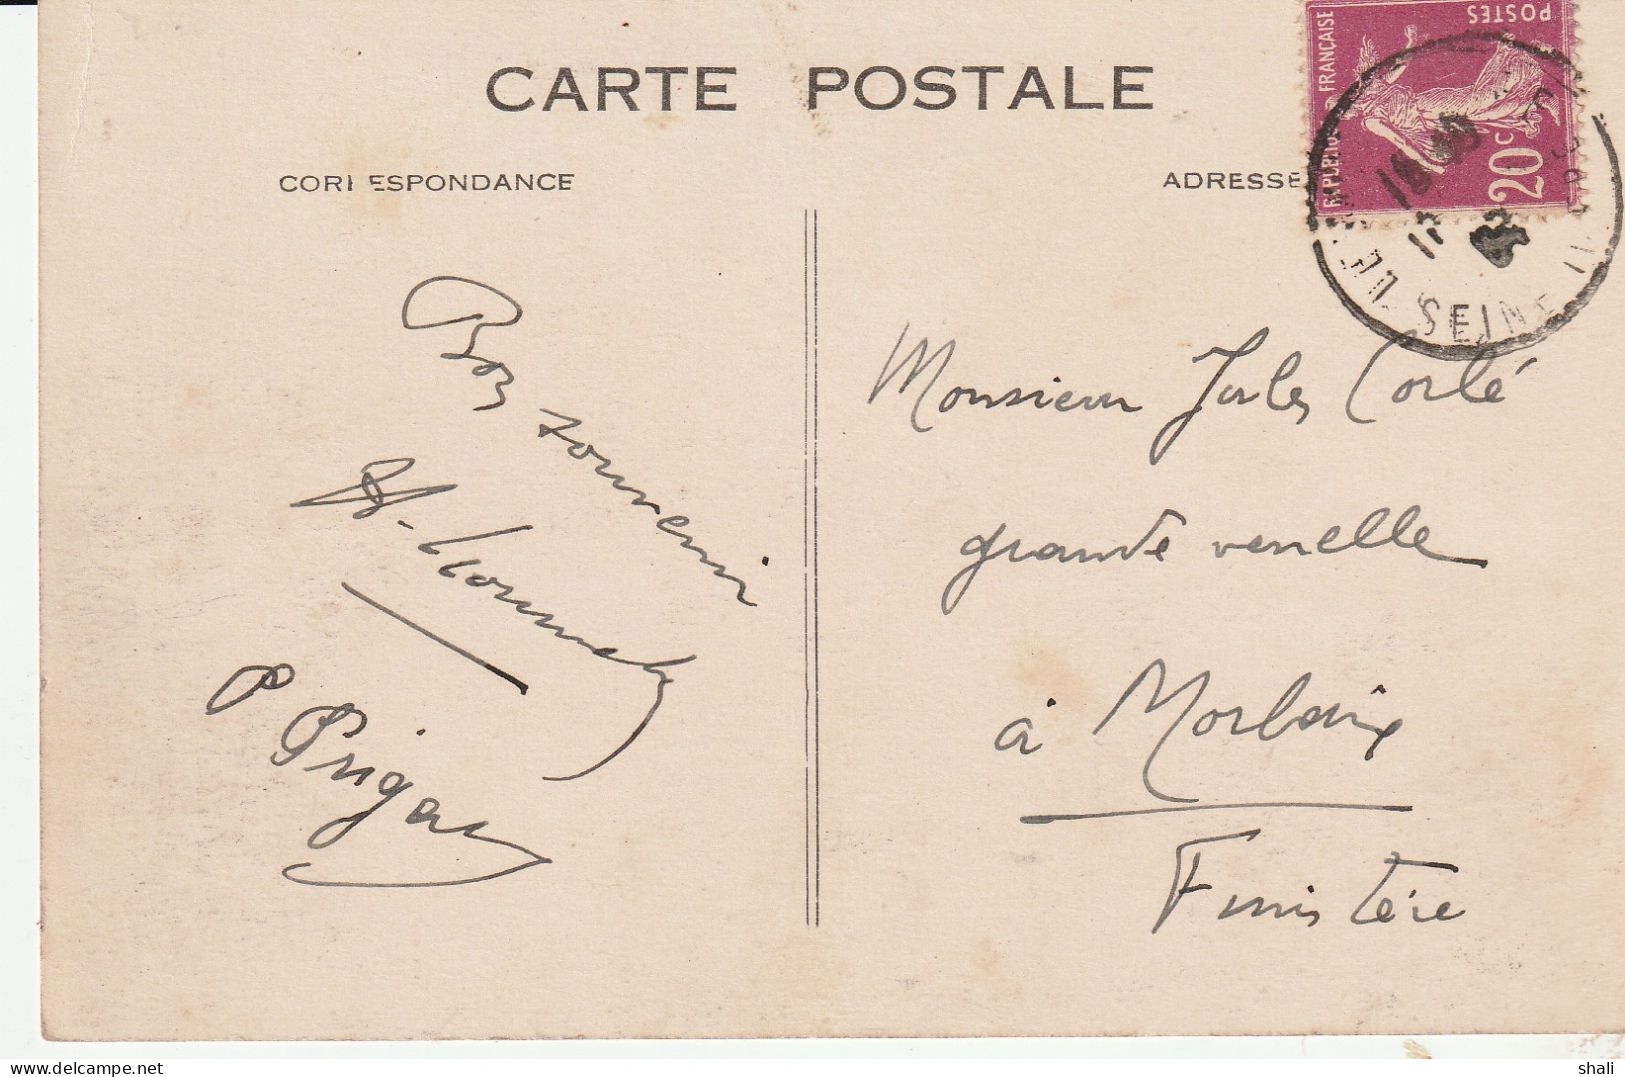 CARTE POSTALE
CORRESPONDANCE
ADRESSE
REPUBLIQUE FRANÇAISE
POSTES
20c
SEINE
Bon souvenir
P Prigau
Monsieur Jules Corlé
grande venelle
à Morlaix
Finistère
shali